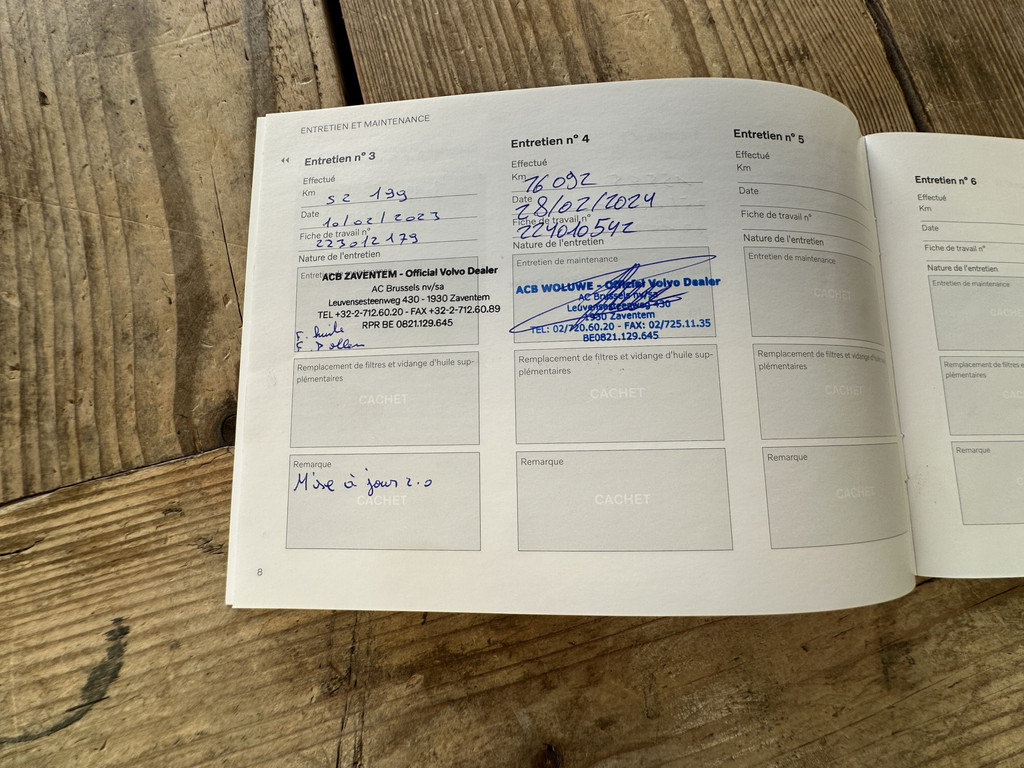 ENTRETIEN ET MAINTENANCE
Entretien n° 3
Effectué
Km 52 199
Date 10/02/2023
Fiche de travail n°
223012179
Nature de l'entretien
ACB ZAVENTEM - Official Volvo Dealer
AC Brussels nv/sa
Leuvensesteenweg 430 - 1930 Zaventem
TEL +32-2-712.60.20 - FAX +32-2-712.60.89
RPR BE 0821.129.645
F. huile
F. Pollen
Remplacement de filtres et vidange d'huile sup-
plémentaires
CACHET
Remarque
Mise à jour 2.0
CACHET
8
Entretien n° 4
Effectué
Km 76 092
Date 28/02/2024
Fiche de travail n°
224010542
Nature de l'entretien
Entretien de maintenance
ACB WOLUWE - Official Volvo Dealer
AC Brussels nv/sa
Leuvensesteenweg 430
1930 Zaventem
TEL: 02/720.60.20 - FAX: 02/725.11.35
BE0821.129.645
Remplacement de filtres et vidange d'huile sup-
plémentaires
CACHET
Remarque
CACHET
Entretien n° 5
Effectué
Km
Date
Fiche de travail n°
Nature de l'entretien
Entretien de maintenance
CACHET
Remplacement de filtres et vidange d'huile
plémentaires
CACHET
Remarque
CACHET
Entretien n° 6
Effectué
Km
Date
Fiche de travail n°
Nature de l'entretien
Entretien de maintenance
Remplacement de filtres e
plémentaires
Remarque